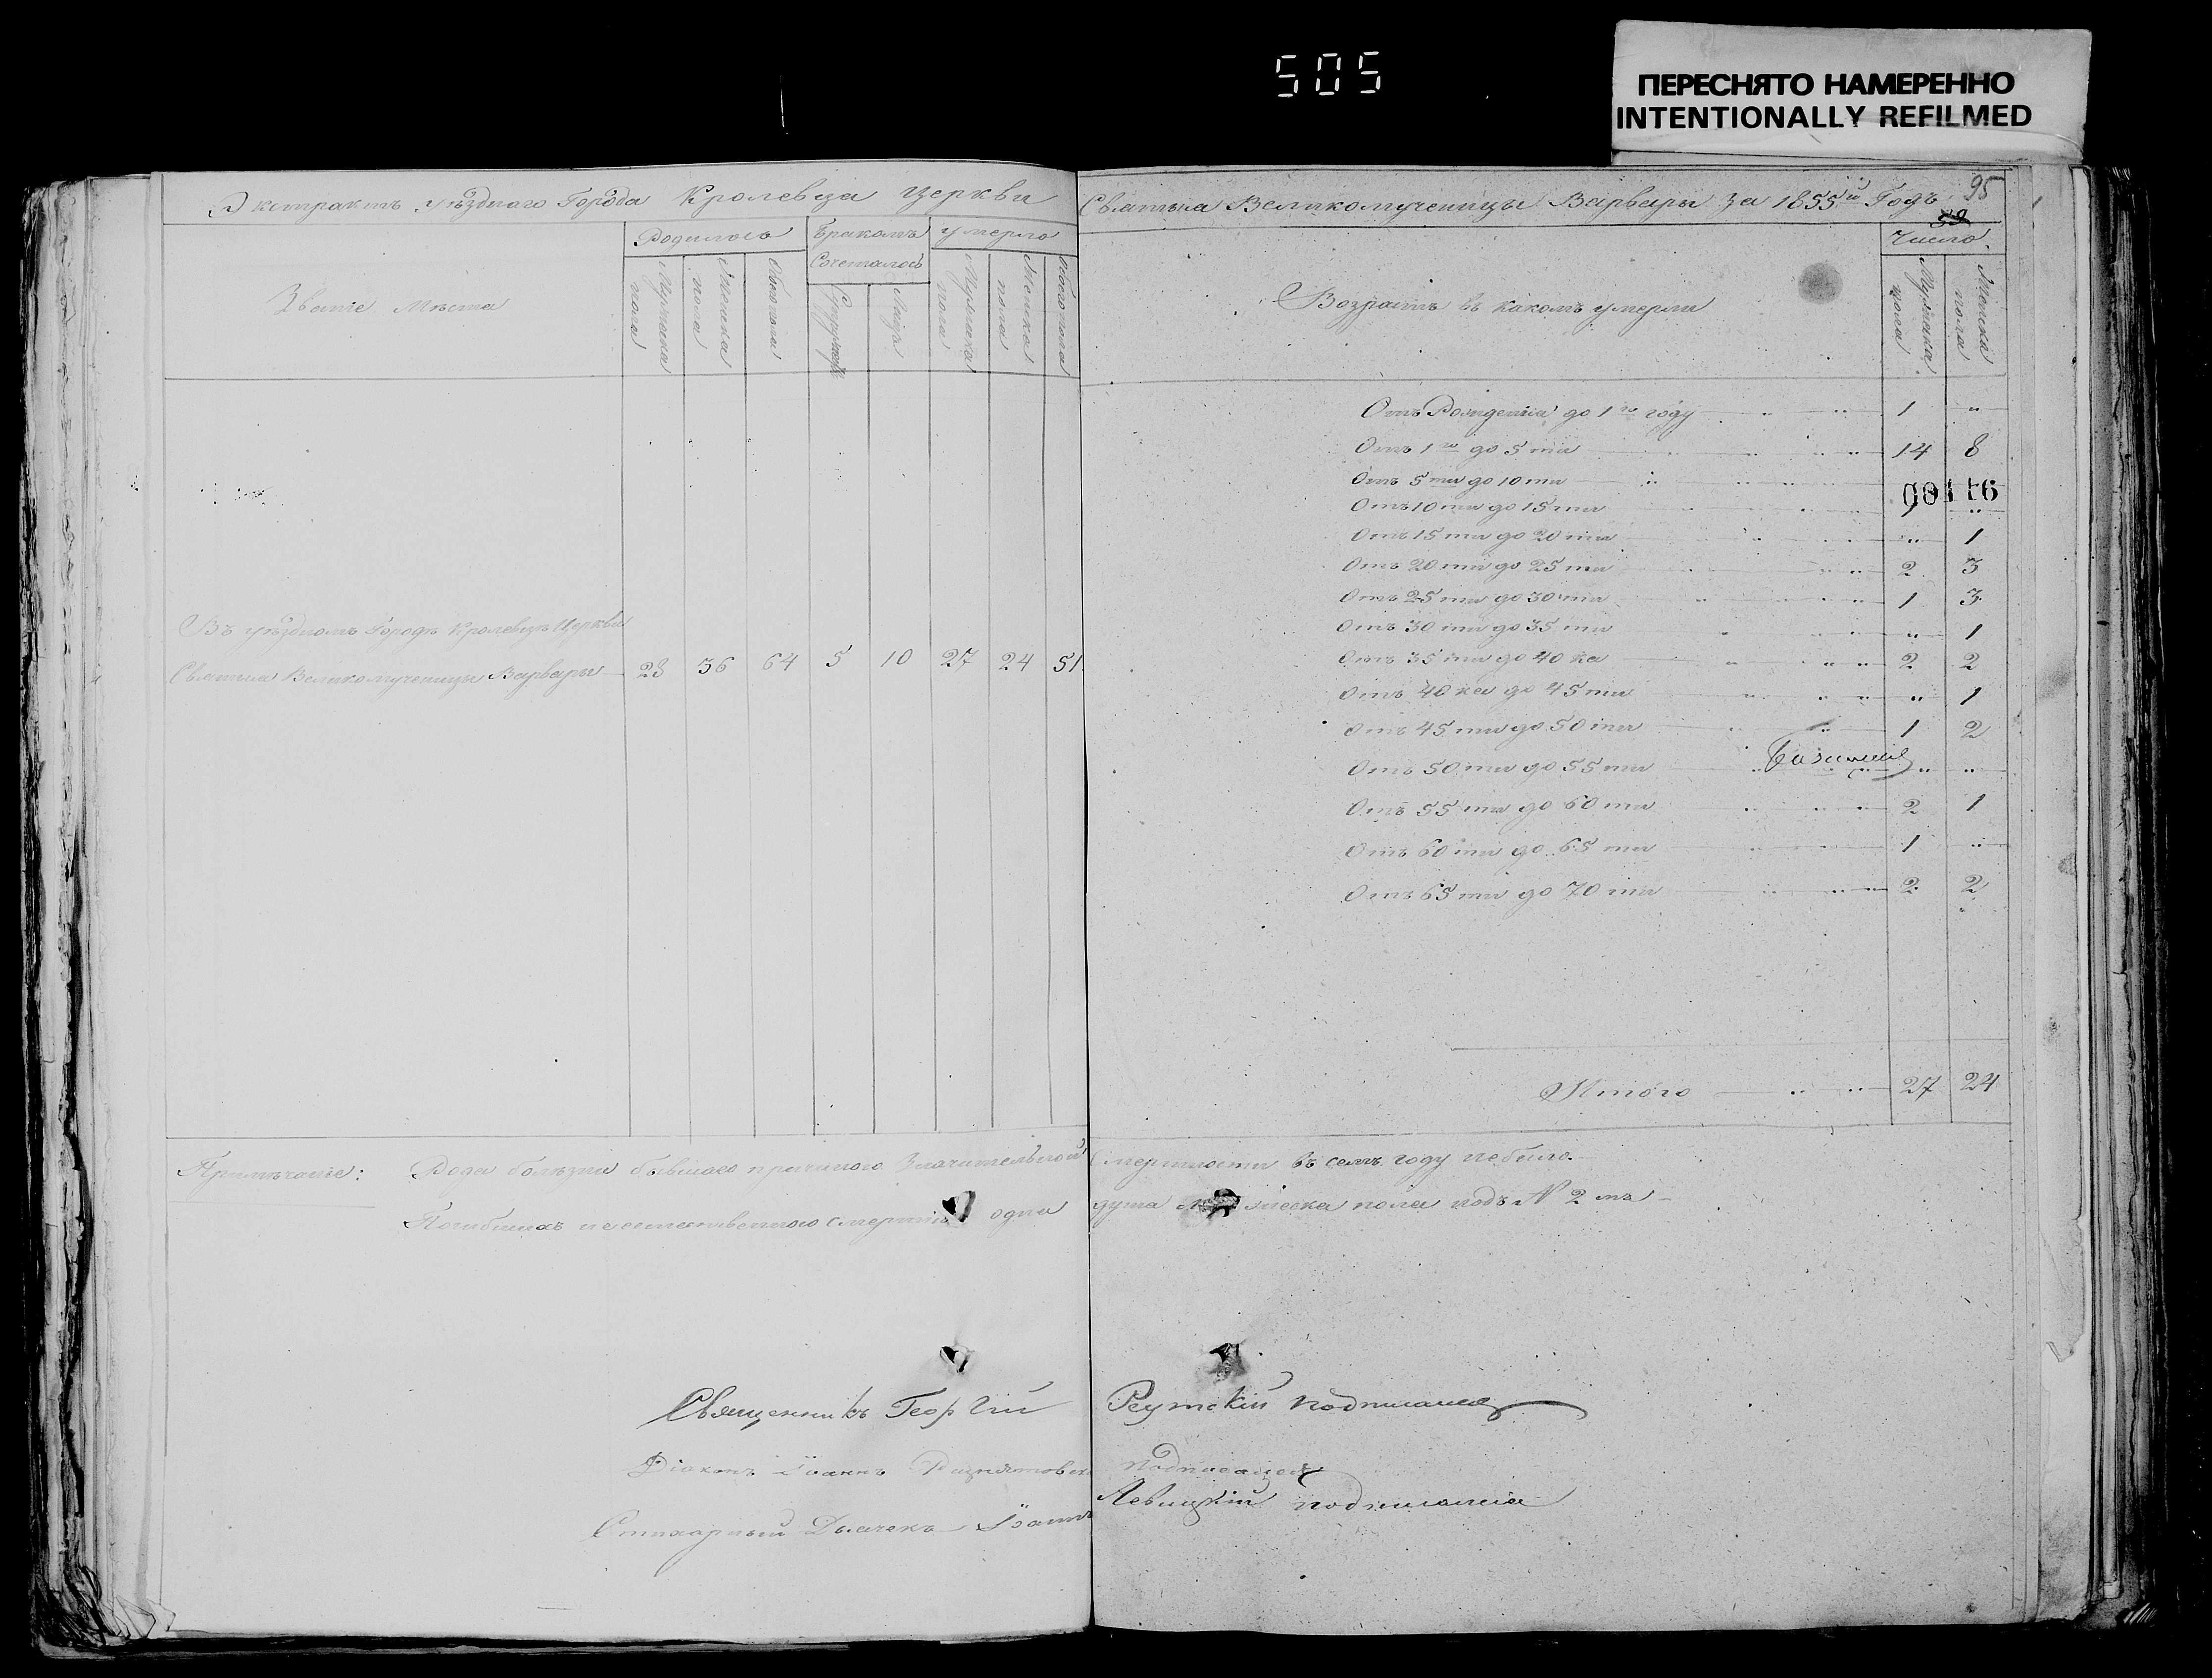 505
ПЕРЕСНЯТО НАМЕРЕННО
INTENTIONALLY REFILMED
95
Экстрактъ уѣзднаго Города Кролевца Церкви Святыя Великомученицы Варвары За 1855й Годъ
Званіе Мѣста
Родилось
Мужеска пола
Женска пола
Обоего пола
Бракомъ Сочеталось
Супружествъ
Лицъ
умерло
Мужеска пола
Женска пола
Обоего пола
Возрастъ въ какомъ умерли
Число
Мужеска пола
Женска пола
Въ уѣздномъ Городѣ Кролевцѣ Церкви
Святыя Великомученицы Варвары 28 36 64 5 10 27 24 51
Отъ Рожденія до 1го году 1 "
Отъ 1го до 5ти 14 8
Отъ 5ти до 10ти
Отъ 10ти до 15ти
Отъ 15ти до 20ти " 1
Отъ 20ти до 25ти 2 3
Отъ 25ти до 30ти 1 3
Отъ 30ти до 35ти " 1
Отъ 35ти до 40ка 2 2
Отъ 40ка до 45ти " 1
Отъ 45ти до 50ти 1 2
Отъ 50ти до 55ти " "
Отъ 55ти до 60ти 2 1
Отъ 60ти до 65ти 1 "
Отъ 65ти до 70ти 2 2
Итого 27 24
Примѣчаніе: Рода болѣзни бывшаго причиною Значительной Смертности въ семъ году небыло.
Погибшихъ неестественною смертію одна душа женска пола подъ № 2мъ
Священникъ Георгій Реутскій подписался
Діаконъ Іоаннъ подписался
Стихарный Дьячекъ Іоаннъ Левицкій подписался